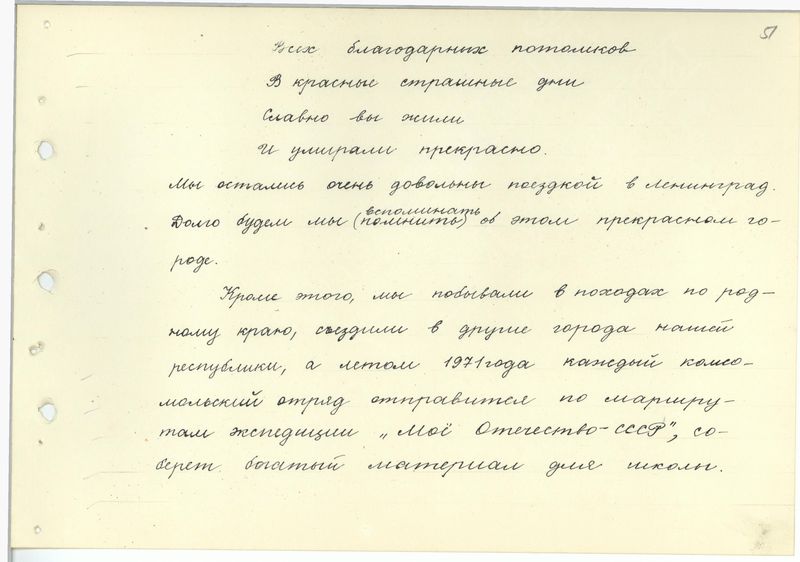 51
Всех благодарных потомков
В красные страшные дни
Славно вы жили
И умирали прекрасно.
Мы остались очень довольны поездкой в Ленинград.
вспоминать
Долго будем мы (помнить) об этом прекрасном го-
роде.
Кроме этого, мы побывали в походах по род-
ному краю, съездили в другие города нашей
республики, а летом 1971 года каждый комсо-
мольский отряд отправится по маршру-
там экспедиции „Моё Отечество-СССР", со-
берет богатый материал для школы.